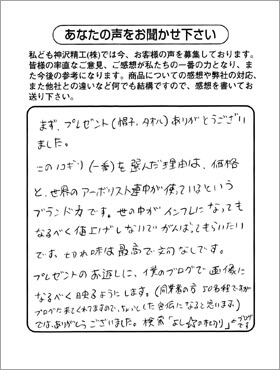 あなたの声をお聞かせ下さい
私ども神沢精工(株)では今、お客様の声を募集しております。
皆様の率直なご意見、ご感想が私たちの一番の力となり、ま
た今後の参考になります。商品についての感想や弊社の対応、
また他社との違いなど何でも結構ですので、感想を書いてお
送り下さい。
まず、プレゼント(帽子、タオル)ありがとうござい
ました。
このノコギリ(一番)を選んだ理由は、価格
と、世界のアーボリスト連中が使ているという
ブランド力です。世の中がインフレになっても
なるべく値上げしないでがんばってもらいたい
です、切れ味は最高で文句なしです。
プレゼントのお返しに、僕のブログで画像に
なるべく映るようにします。(同業者の方50名程ですが
ブログに来てくれてますので、ちょっとした宣伝になると思います)
では、ありがとうございました。検索「よし の木切り」
ブログ
です